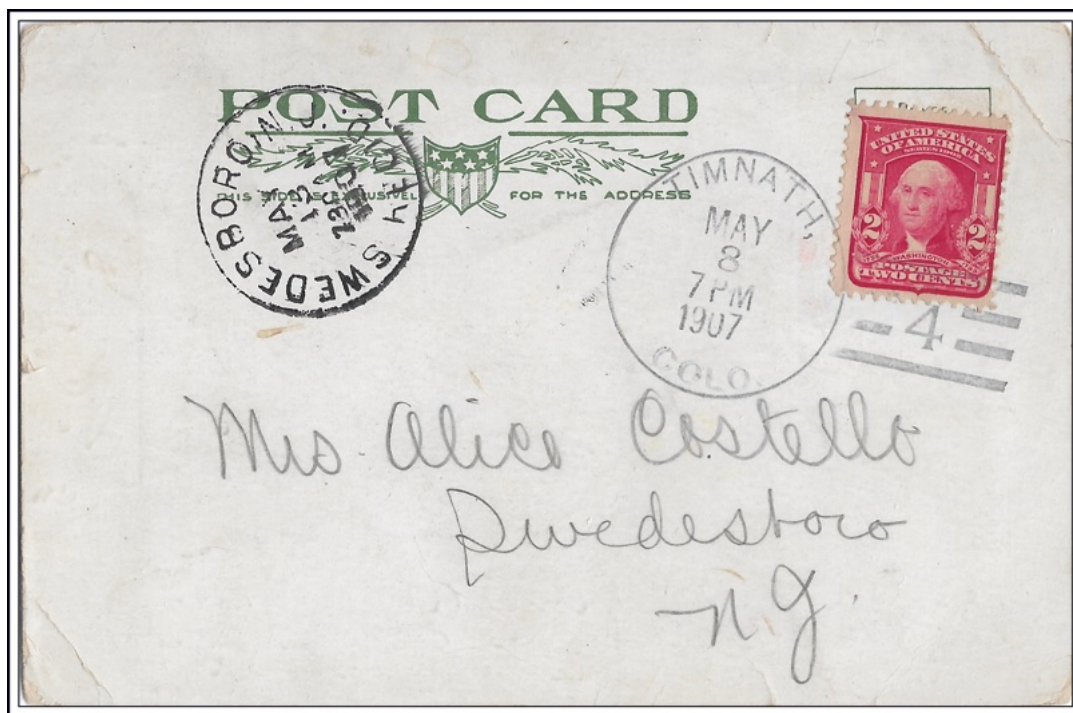 POST CARD
THIS SIDE IS EXCLUSIVELY FOR THE ADDRESS
SWEDESBORO, N.J.
MAY
12
1907
REC'D.
TIMNATH,
MAY
8
7 PM
1907
COLO.
4
UNITED STATES
OF AMERICA
SERIES 1902
2 2
WASHINGTON
POSTAGE
TWO CENTS
Mrs. Alice Costello
Swedesboro
N J.